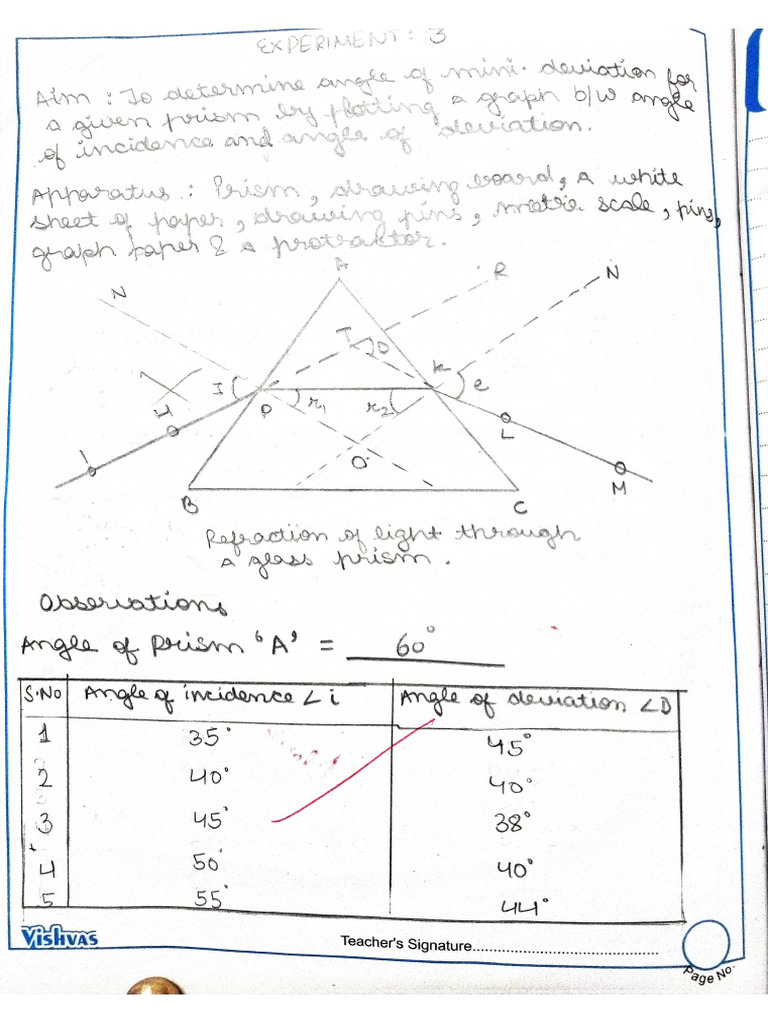 EXPERIMENT: 3
Aim : To determine angle of mini. deviation for
a given prism by plotting a graph b/w angle
of incidence and angle of deviation.
Apparatus : Prism, drawing board, A white
sheet of paper, drawing pins, metric scale, pins,
graph paper & a protraktor.
A
N
R
N
T
D
K
I
e
P
r1
r2
H
L
I
O
M
B
C
Refraction of light through
a glass prism.
Observations
Angle of Prism 'A' = 60°
S.No Angle of incidence ∠i Angle of deviation ∠D
1 35° 45°
2 40° 40°
3 45° 38°
4 50° 40°
5 55° 44°
Vishvas
Teacher's Signature
Page No.